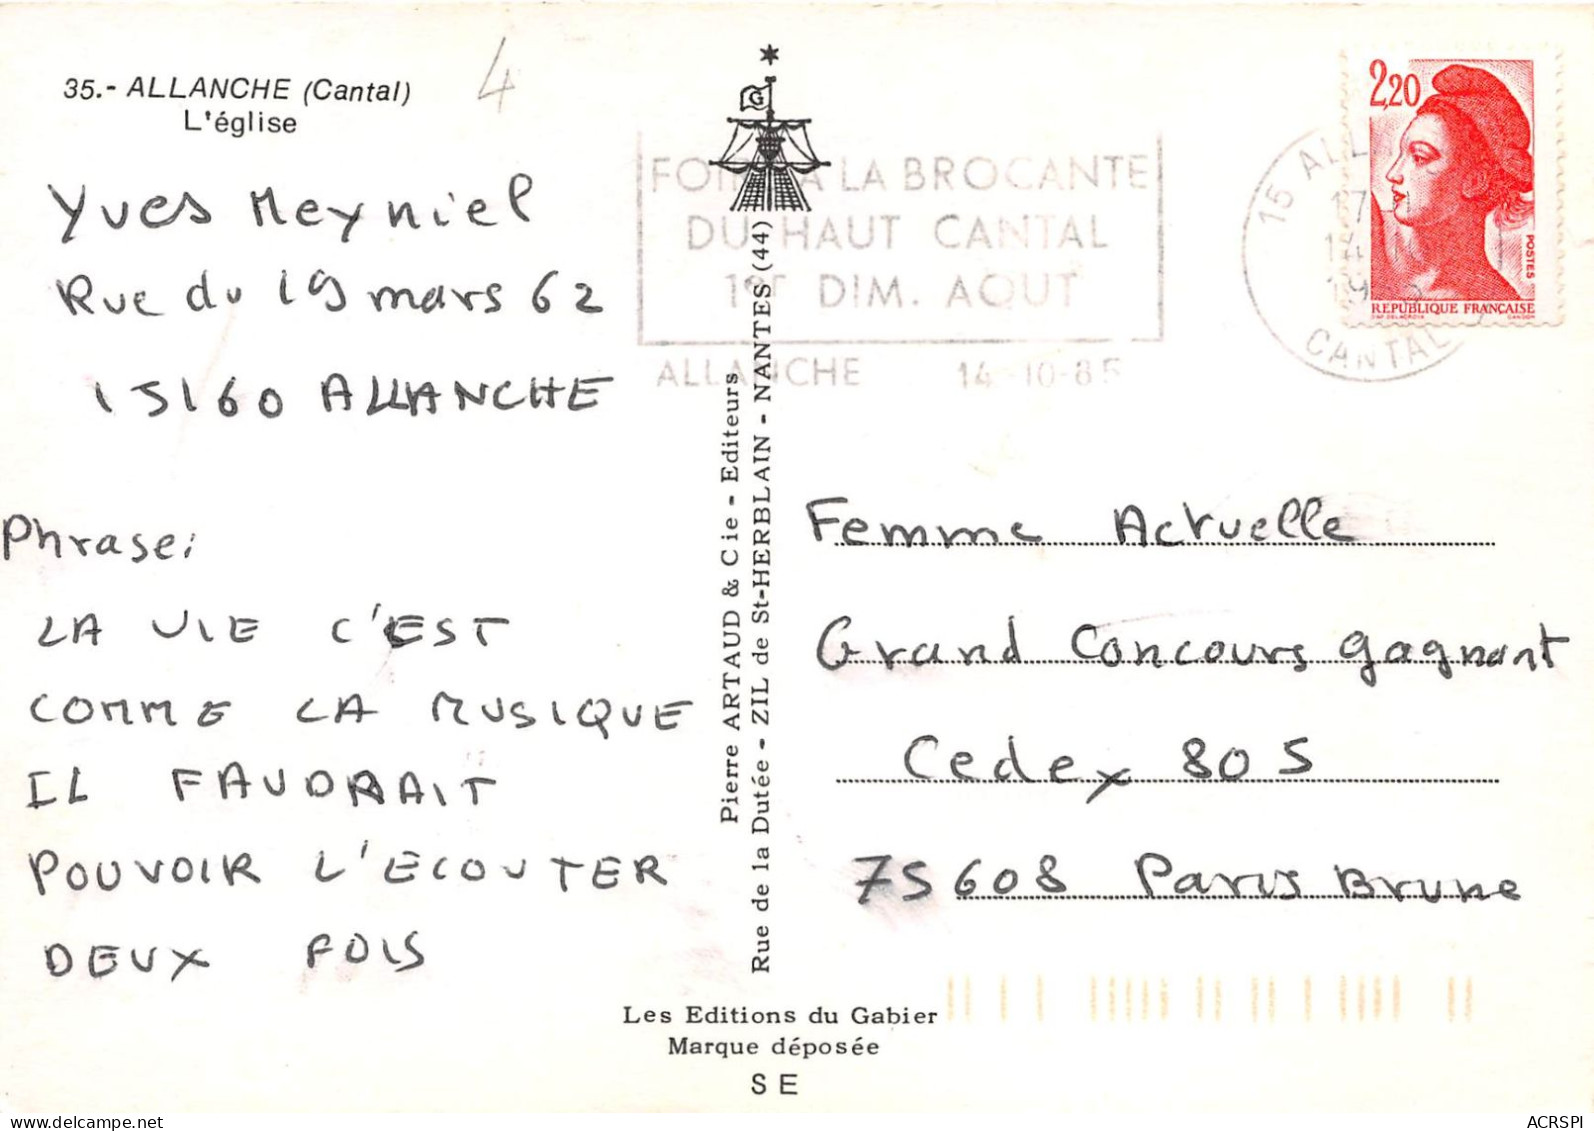 35.- ALLANCHE (Cantal)
L'église
4
Yves Meyniel
Rue du 19 mars 62
15160 ALLANCHE
Phrase:
LA VIE C'EST
COMME LA MUSIQUE
IL FAUDRAIT
POUVOIR L'ECOUTER
DEUX FOIS
G
FOIRE A LA BROCANTE
DU HAUT CANTAL
1er DIM. AOUT
ALLANCHE 14-10-85
Pierre ARTAUD & Cie - Editeurs
Rue de la Dutée - ZIL de St-HERBLAIN - NANTES (44)
15 ALL
17
14
19
CANTAL
2,20
POSTES
REPUBLIQUE FRANÇAISE
D'AP. DELACROIX GANDON
Femme Actuelle
Grand Concours gagnant
Cedex 805
75608 Paris Brune
Les Editions du Gabier
Marque déposée
SE
ACRSPI